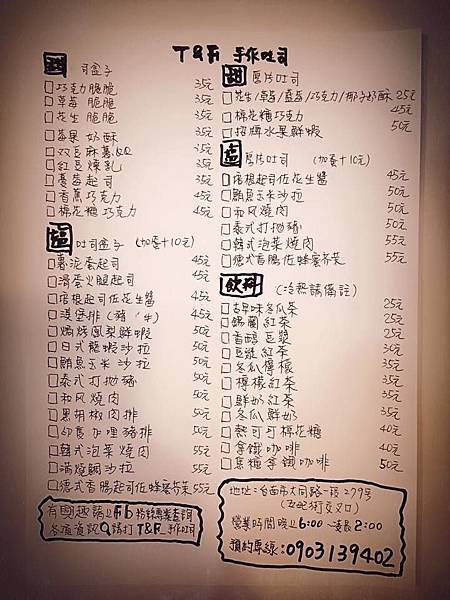 T&F 手作吐司
甜 司盒子
□巧克力脆脆 35元
□草莓 脆脆 35元
□花生 脆脆 35元
□莓果 奶酥 35元
□双豆麻薯 35元
□紅豆煉乳 35元
□蔓莓起司 35元
□香蕉巧克力 45元
□棉花糖巧克力 45元
鹹 吐司盒子 (加蛋+10元)
□薯泥蛋起司 45元
□滑蛋火腿起司 45元
□培根起司佐花生醬 45元
□漢堡排(豬/牛) 45元
□焗烤鳳梨鮮蝦 50元
□日式龍蝦沙拉 50元
□鮪魚玉米沙拉 50元
□泰式打拋豬 50元
□和風燒肉 50元
□黑胡椒肉排 50元
□印度咖哩豬排 50元
□韓式泡菜燒肉 55元
□燻鮭沙拉 55元
□德式香腸起司佐蜂蜜芥茉 55元
有興趣請上Fb粉絲專業查詢
各項資訊Q請打T&F手作吐司
甜 厚片吐司
□花生/草莓/藍莓/巧克力/椰子奶酥 25元
□棉花糖巧克力 45元
□招牌水果鮮蝦 50元
鹹 厚片吐司 (加蛋+10元)
□培根起司佐花生醬 45元
□鮪魚玉米沙拉 50元
□和風燒肉 50元
□泰式打拋豬 50元
□韓式泡菜燒肉 55元
□德式香腸佐蜂蜜芥茉 55元
飲料 (冷熱請備註)
□古早味冬瓜茶 25元
□錫蘭紅茶 25元
□香醇豆漿 25元
□豆漿紅茶 30元
□冬瓜檸檬 35元
□檸檬紅茶 35元
□鮮奶紅茶 35元
□冬瓜鮮奶 35元
□熱可可棉花糖 40元
□拿鐵咖啡 40元
□焦糖拿鐵咖啡 50元
地址:台南市大同路一段279号
(五妃街交叉口)
營業時間晚上6:00~凌晨2:00
預約專線:0903139402